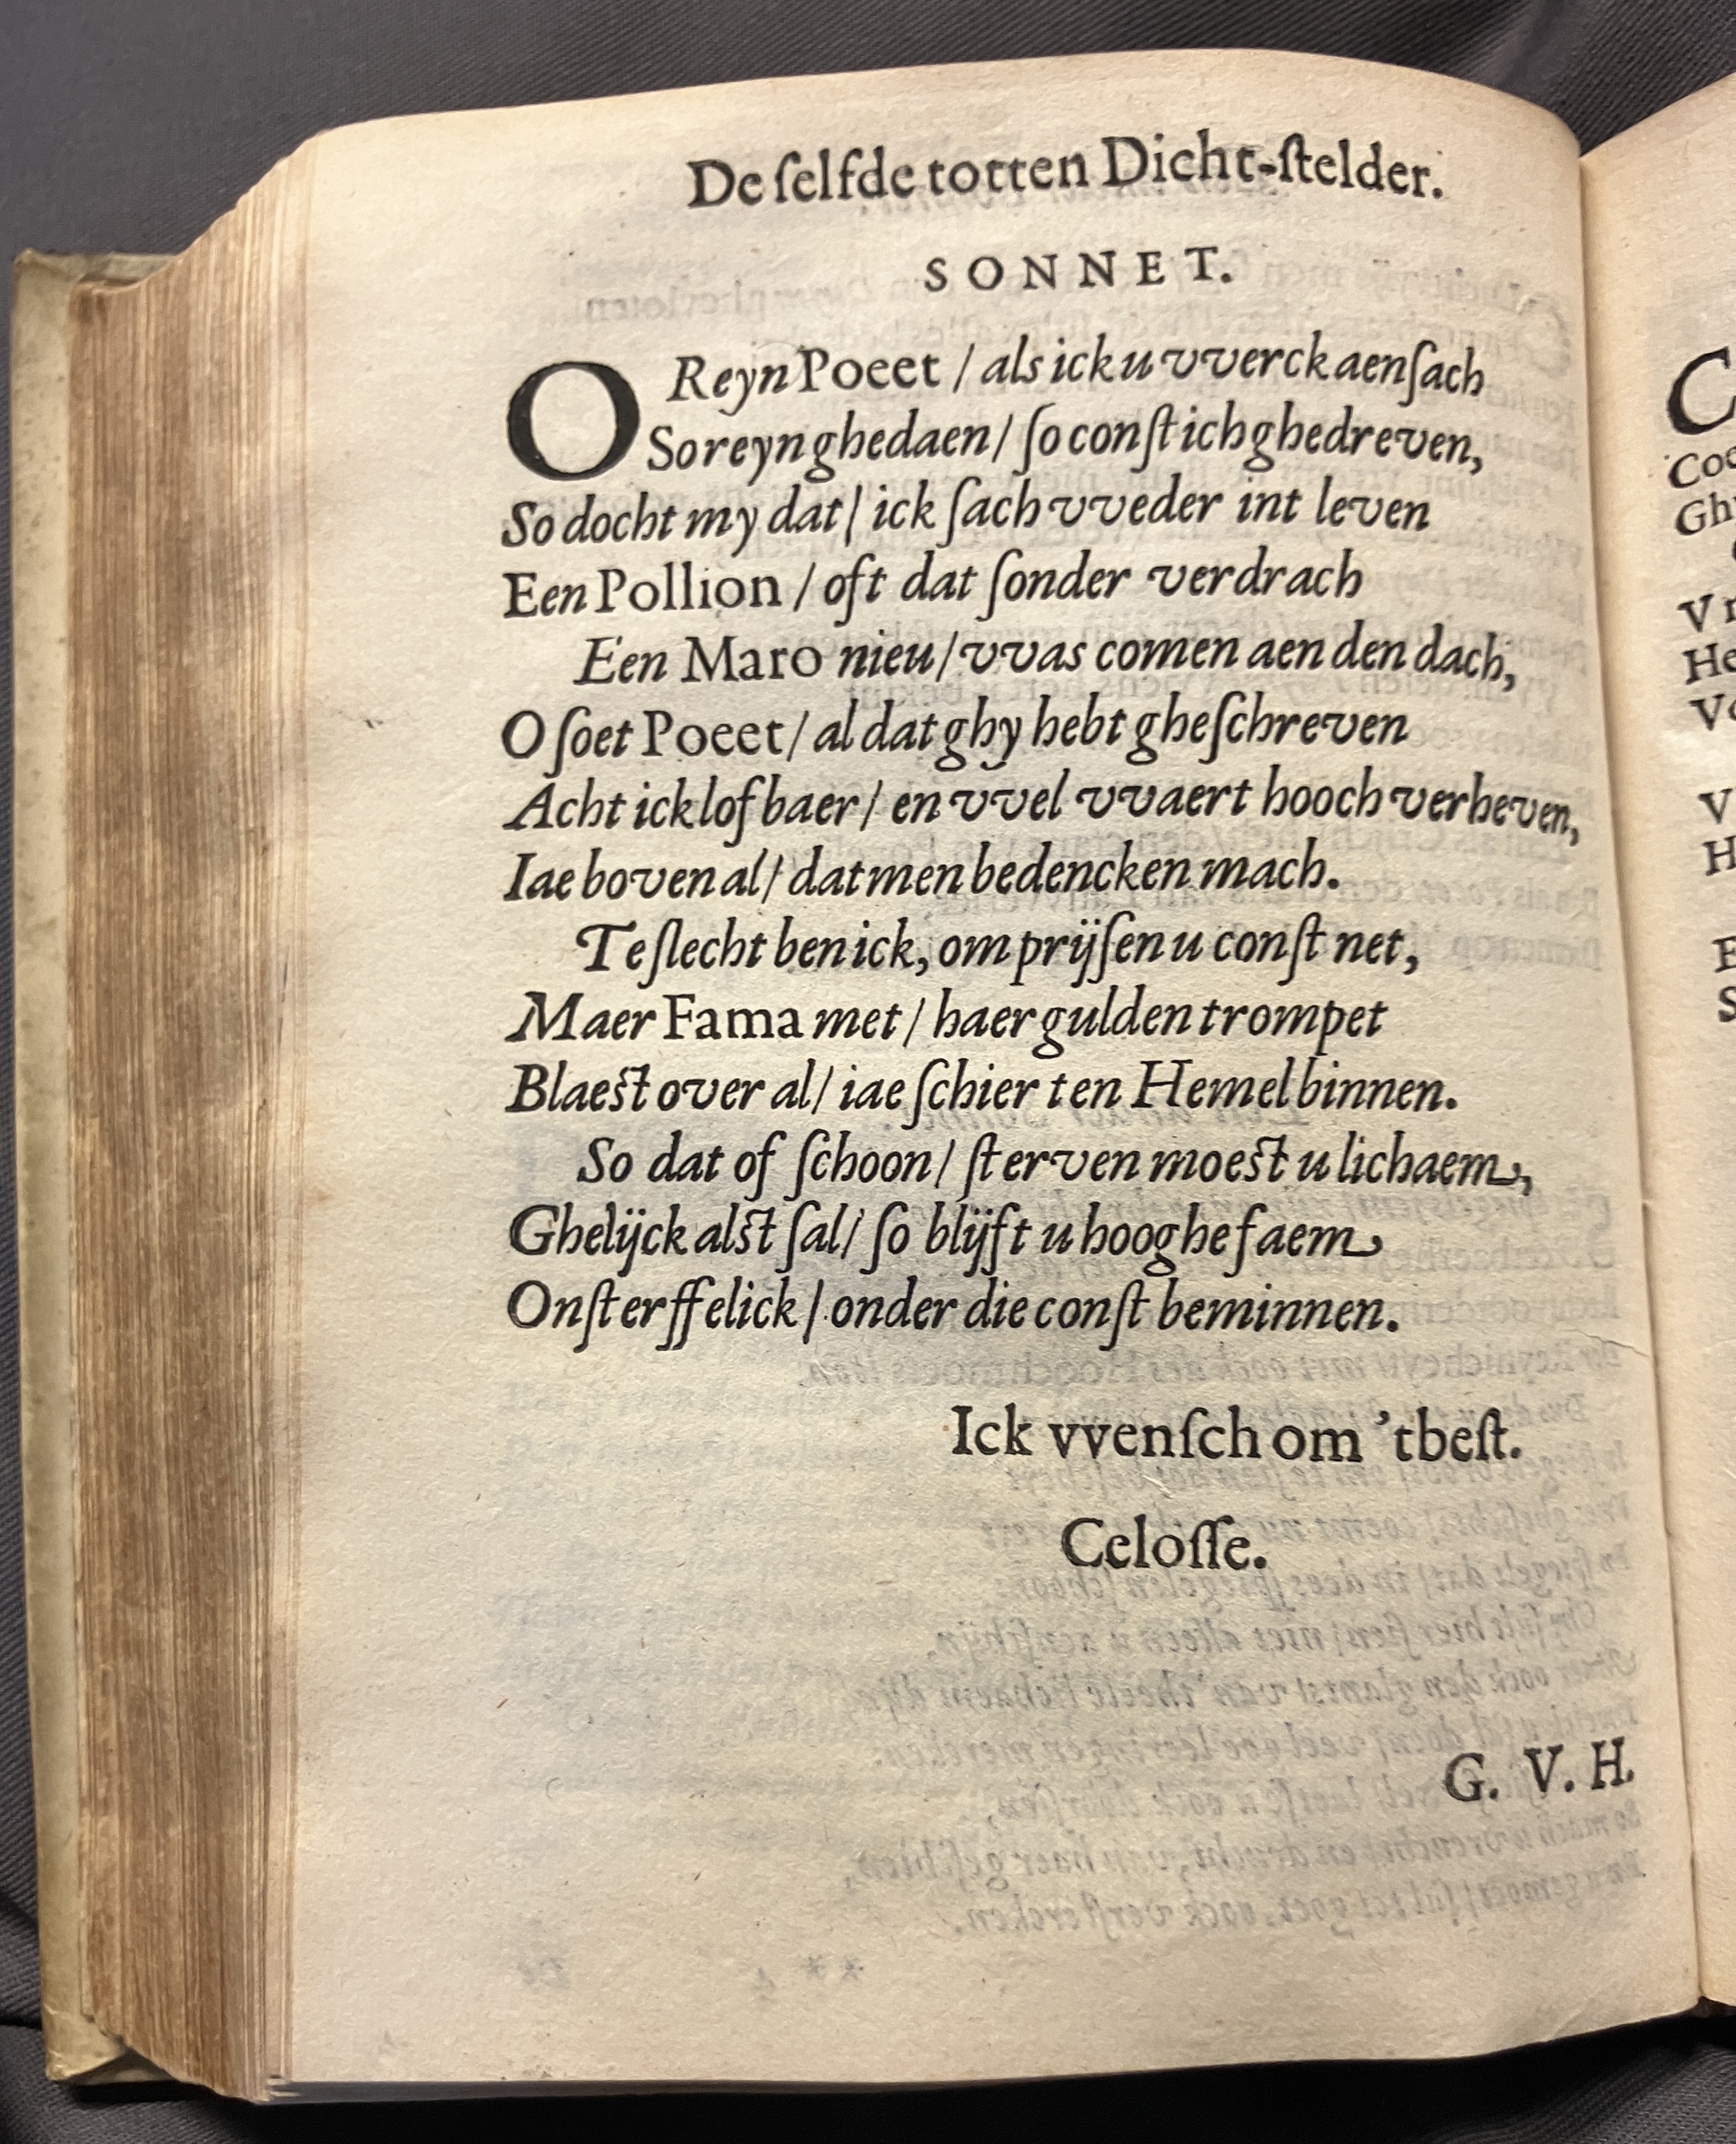 De ſelfde totten Dicht-ſtelder.
SONNET.
O Reyn Poeet / als ick u vverck aenſach
So reyn ghedaen / ſo conſtich ghedreven,
So docht my dat / ick ſach vveder int leven
Een Pollion / oft dat ſonder verdrach
Een Maro nieu / vvas comen aen den dach,
O ſoet Poeet / al dat ghy hebt gheſchreven
Acht ick lofbaer / en vvel vvaert hooch verheven,
Iae boven al / datmen bedencken mach.
Te ſlecht ben ick, om prijſen u conſt net,
Maer Fama met / haer gulden trompet
Blaeſt over al / iae ſchier ten Hemel binnen.
So dat of ſchoon / ſterven moeſt u lichaem,
Ghelijck alſt ſal / ſo blijft u hooghe faem
Onſterffelick / onder die conſt beminnen.
Ick vvenſch om ’tbeſt.
Celoſſe.
G. V. H.
Gh
V
He
V
H
E
S